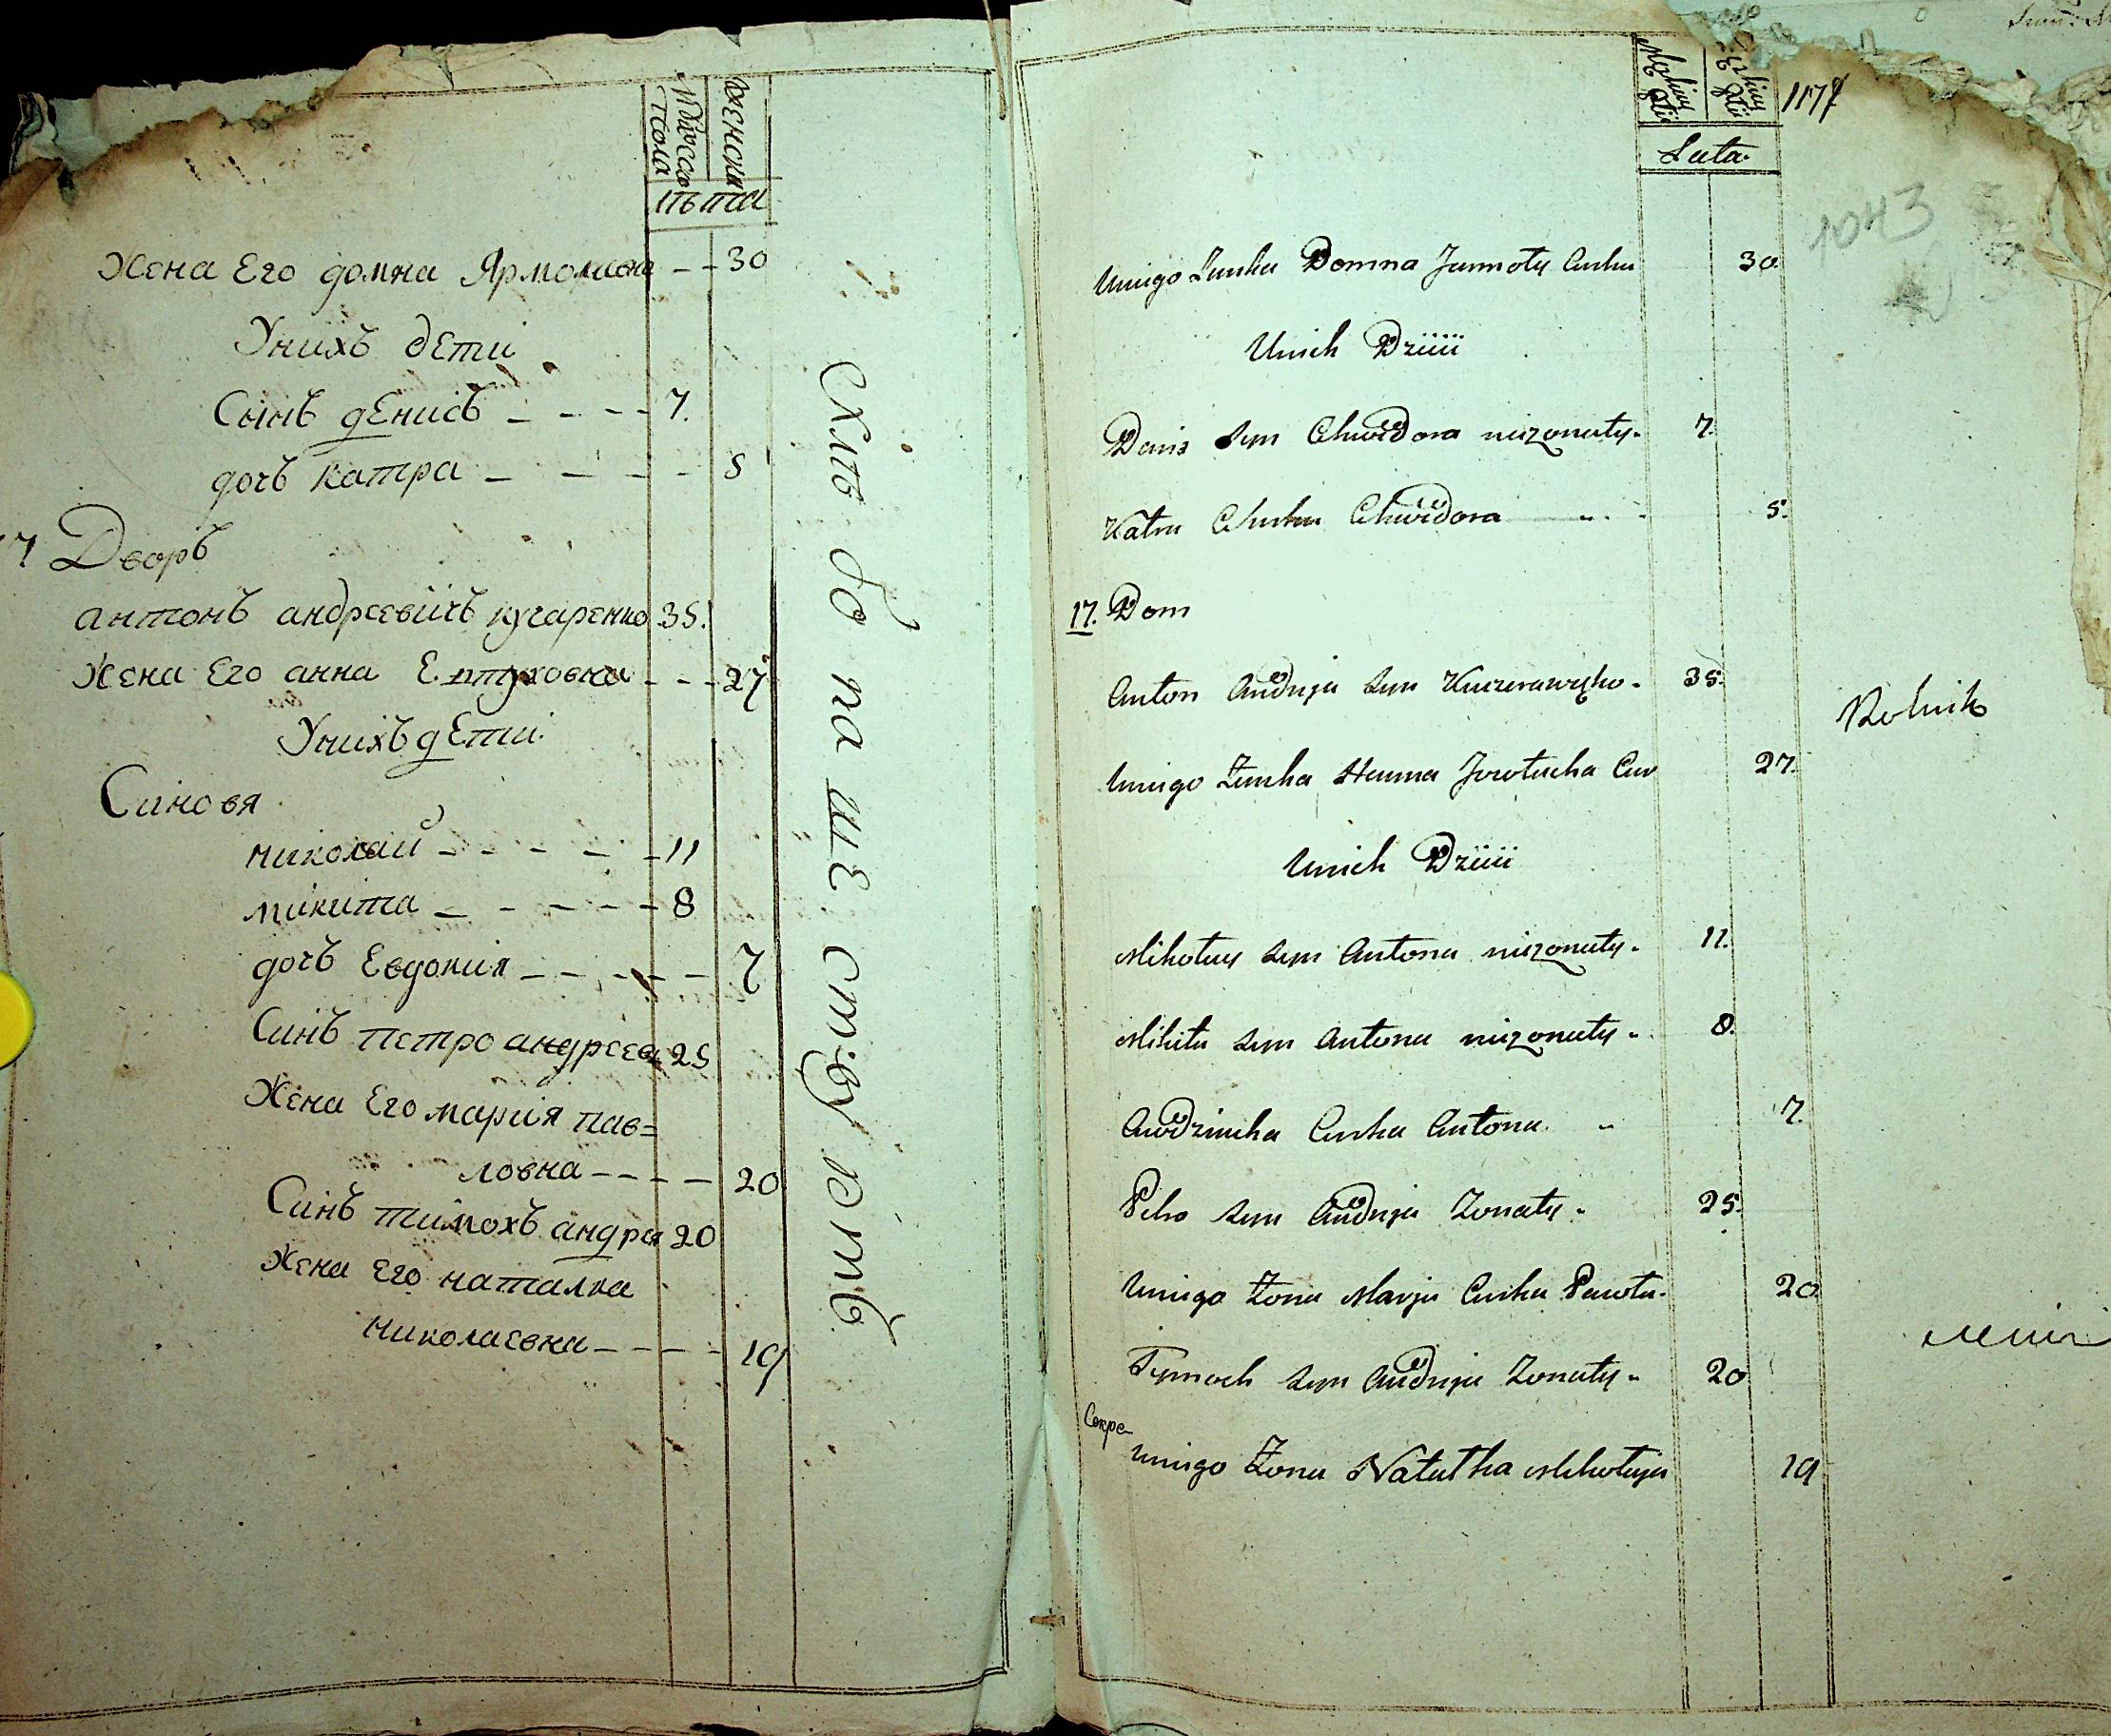 мужеска пола
женска
лѣта
Жена Его домна Ярмоловна - - 30
Унихъ дети
Сынъ денисъ - - - - 7.
дочъ катра - - - - 5
7 Дворъ
антонъ андреевичъ кучаренко 35.
Жена Его анна Евтуховна - - - 27
Унихъ дети
Синовя
николай - - - - - 11
микита - - - - - 8
дочъ Евдокия - - - - - 7
Синъ петро андреев 25
Жена Его мария пав=
ловна - - - - 20
Синъ тимохъ андрея 20
Жена Его наталка
николаевна - - - - 19
1177
Lata.
1043
Uniego Żonka Domna Jarmoły Curka 30.
Unich Dzieci
Denis syn Chwedora nieżonaty. 7.
Katra Curka Chwedora 5.
17. Dom
Anton Andreja syn 35.
Rolnik
Uniego Żonka Hanna Jewtucha Cur 27.
Unich Dzieci
Mikołay syn Antona nieżonaty. 11.
Mikita syn Antona nieżonaty. 8.
Awdziucha Curka Antona. 7.
Petro syn Andreja Żonaty. 25.
Uniego Żona Marja Curka Pawła. 20
Tymoch syn Andreja Żonaty. 20
Uniego Żona Natałka Mikołaja 19